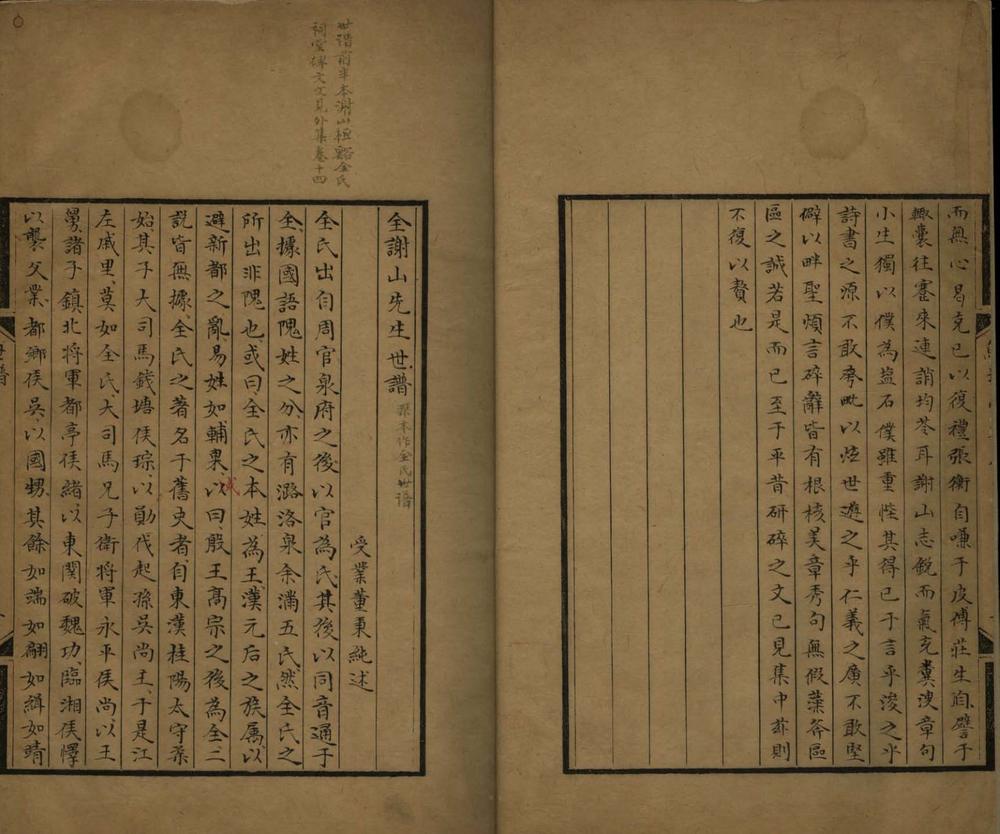 而無心曷克已以復禮張衡自嗛于皮傅莊生自譬于
輙囊往蹇來連誚均苓耳謝山志銳而氣充糞溲章句
小生獨以僕為盐石僕雖重性其得已于言乎浚之乎
詩書之源不敢旁毗以侸世遊之乎仁義之廣不敢堅
僻以畔聖煩言碎辭皆有根核美章秀句無假葉斧區
區之誠若是而已至于平昔研碎之文已見集中茲則
不復以贅也
世譜前半本謝山桓谿全氏
祠堂碑文文見外集卷十四
全謝山先生世譜 栞本作全氏世譜
受業董秉純述
全氏出自周官泉府之後以官為氏其後以同音通于
全據國語隗姓之分亦有潞洛泉余滿五氏然全氏之
所出非隗也或曰全氏之本姓為王漢元后之族属以
避新都之亂易姓如輔果以曰殷王高宗之後為全二
或
説皆無據全氏之著名于舊史者自東漢桂陽太守柔
始其子大司馬錢塘侯琮以勛伐起孫吳尚主于是江
左戚里莫如全氏大司馬兄子衛將軍永平侯尚以王
舅諸子鎮北将軍都亭侯緒以東関破魏功臨湘侯懌
以襲父業都鄉侯吳以國甥其餘如端如翩如緝如靖
世譜